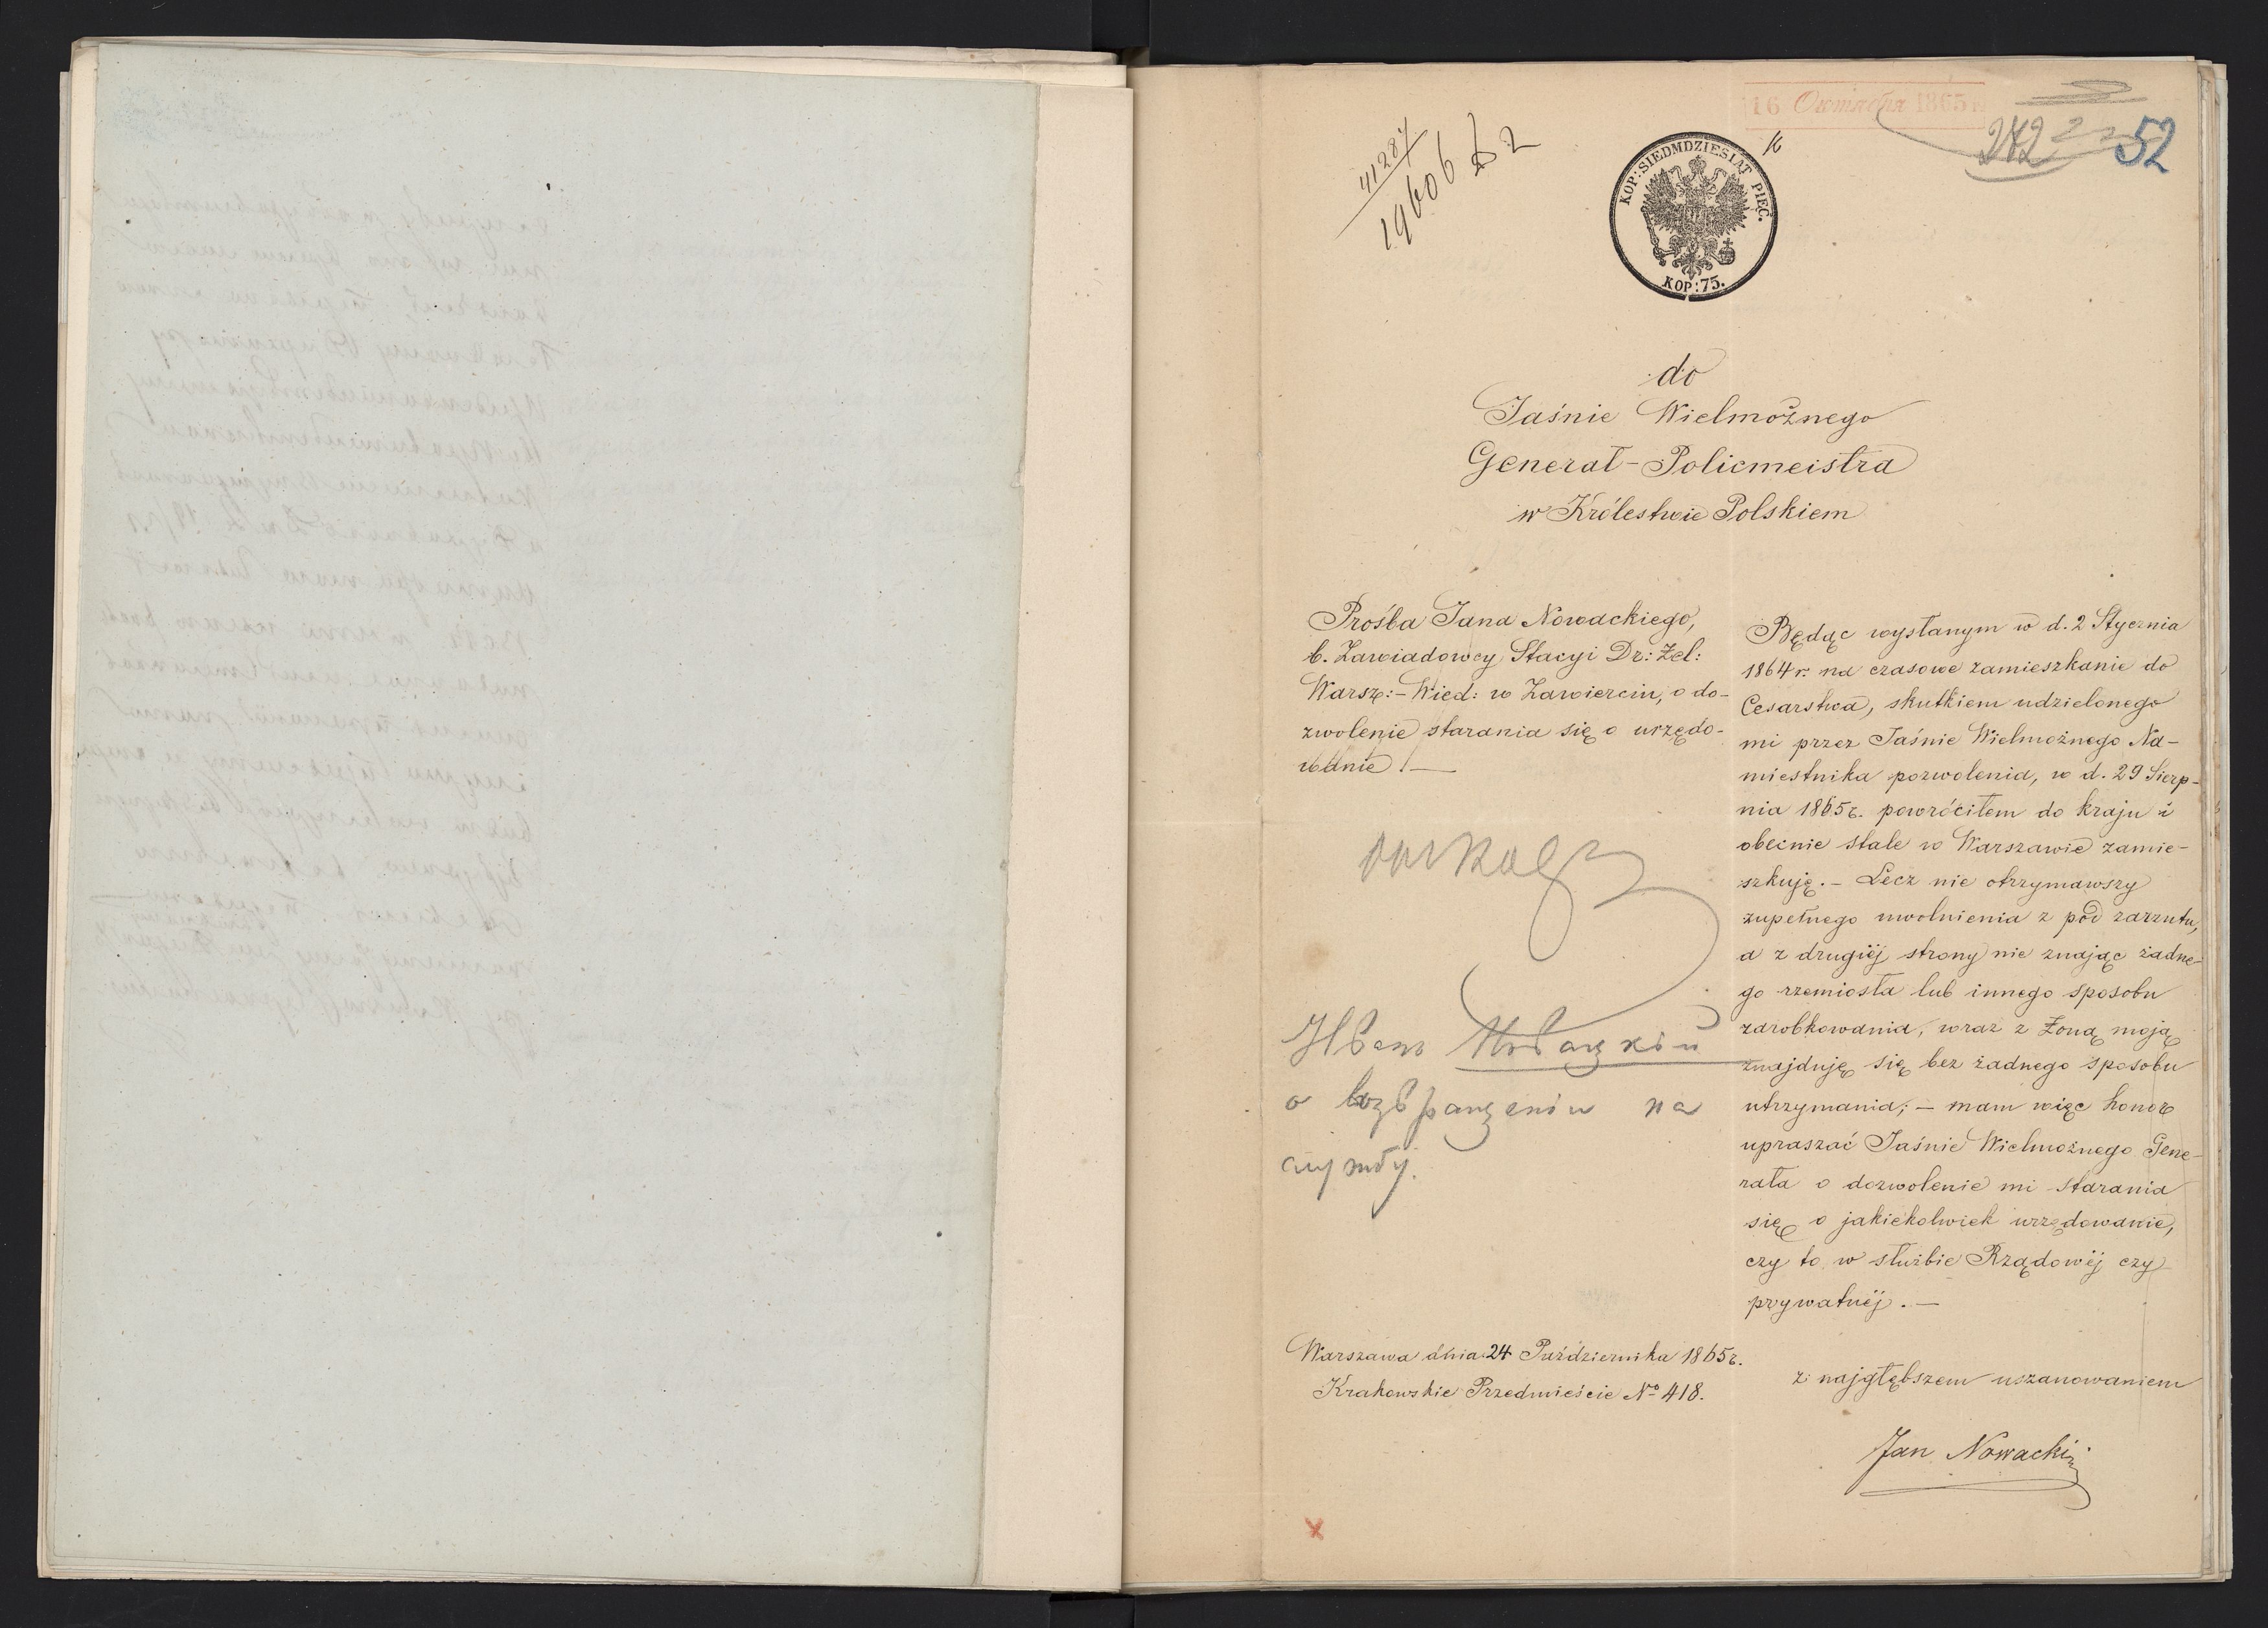 16 Октября 1865
41287
19606
52
KOP: SIEDMDZIESIĄT PIĘĆ.
KOP: 75.
do
Jaśnie Wielmożnego
Generał-Policmeistra
w Królestwie Polskiem
Prośba Jana Nowackiego,
b. Zawiadowcy Stacyi Dr: Żel:
Warsz:-Wied: w Zawierciu, o do-
zwolenie starania się o urzędo-
wanie.—
Иванъ Новацкій
о
на
службу.
Warszawa dnia 24 Października 1865 r.
Krakowskie Przedmieście No 418.
Będąc wysłanym w d. 2 Stycznia
1864 r. na czasowe zamieszkanie do
Cesarstwa, skutkiem udzielonego
mi przez Jaśnie Wielmożnego Na-
miestnika pozwolenia, w d. 29 Sierp-
nia 1865 r. powróciłem do kraju i
obecnie stale w Warszawie zamie-
szkuję.- Lecz nie otrzymawszy
zupełnego uwolnienia z pod zarzutu,
a z drugiéj strony nie znając żadne-
go rzemiosła lub innego sposobu
zarobkowania, wraz z Żoną moją
znajduję się bez żadnego sposobu
utrzymania; — mam więc honor
upraszać Jaśnie Wielmożnego Gene-
rała o dozwolenie mi starania
się o jakiekolwiek urzędowanie,
czy to w służbie Rządowéj czy
prywatnéj.—
z najgłębszem uszanowaniem
Jan Nowacki